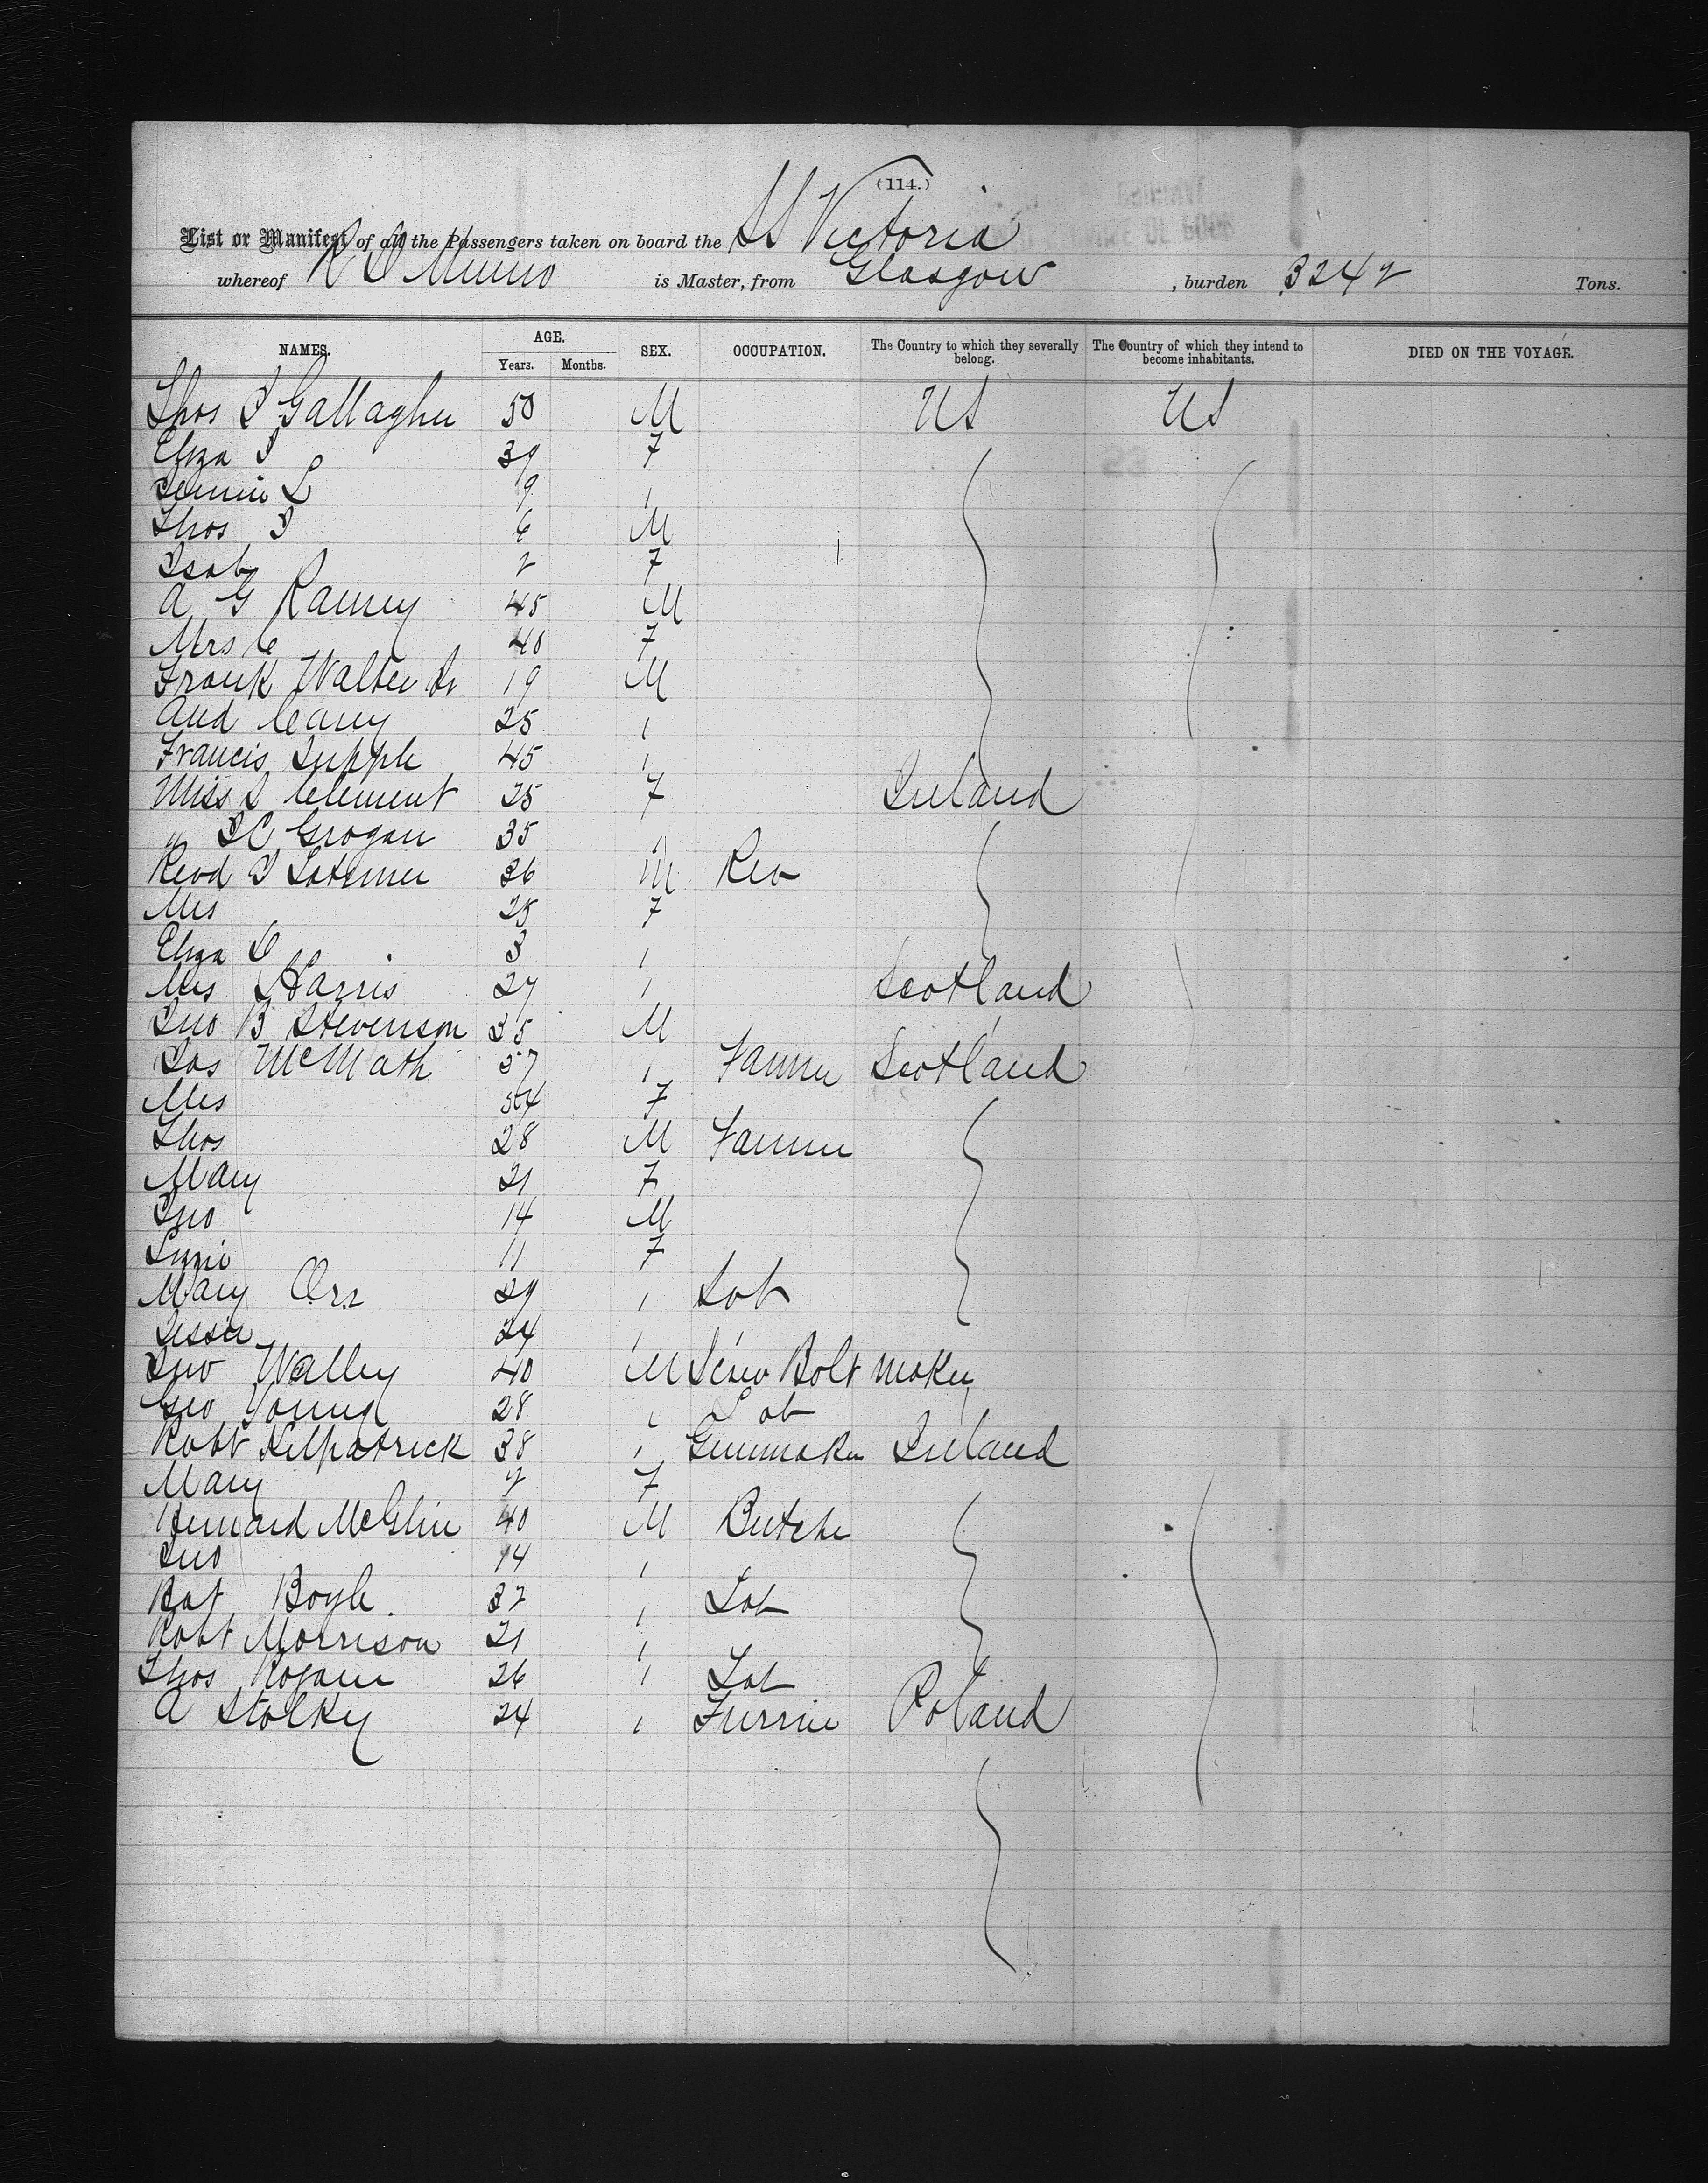 (114.)
List or Manifest of all the Passengers taken on board the SS Victoria
whereof R D Munro is Master, from Glasgow, burden 3242 Tons.
NAMES. AGE. SEX. OCCUPATION. The Country to which they severally belong. The Country of which they intend to become inhabitants. DIED ON THE VOYAGE.
Years. Months.
Thos J Gallagher 50 M US US
Eliza J 39 F
L 9 "
Thos J 6 M
Isab 2 F
A G Ramey 45 M
Mrs C 40 F
Frank Walter 19 M
And Carry 25 "
Francis Supple 45 "
Miss J Clement 25 F Ireland
" Grogan 35 "
Revd J Latimer 36 M Rev
Mrs 25 F
Eliza 3 "
Mrs Harris 27 " Scotland
Jno B Stevenson 35 M "
Jas McMath 57 " Farmer Scotland
Mrs 54 F
Thos 28 M Farmer
Mary 21 F
Jno 14 M
Lizzie 11 F
Mary Orr 29 " Lab
Jessie 24 "
Jno Walley 40 M Screw Bolt Maker
Geo Young 28 " Lab
Robt Kilpatrick 38 " Gunmaker Ireland
Mary F
McGlin 40 M Butche
Jno 14 "
Pat Boyle. 37 " Lab
Robt Morrison 21 "
Thos 26 " Lab
A Stolky 24 " Furrier Poland